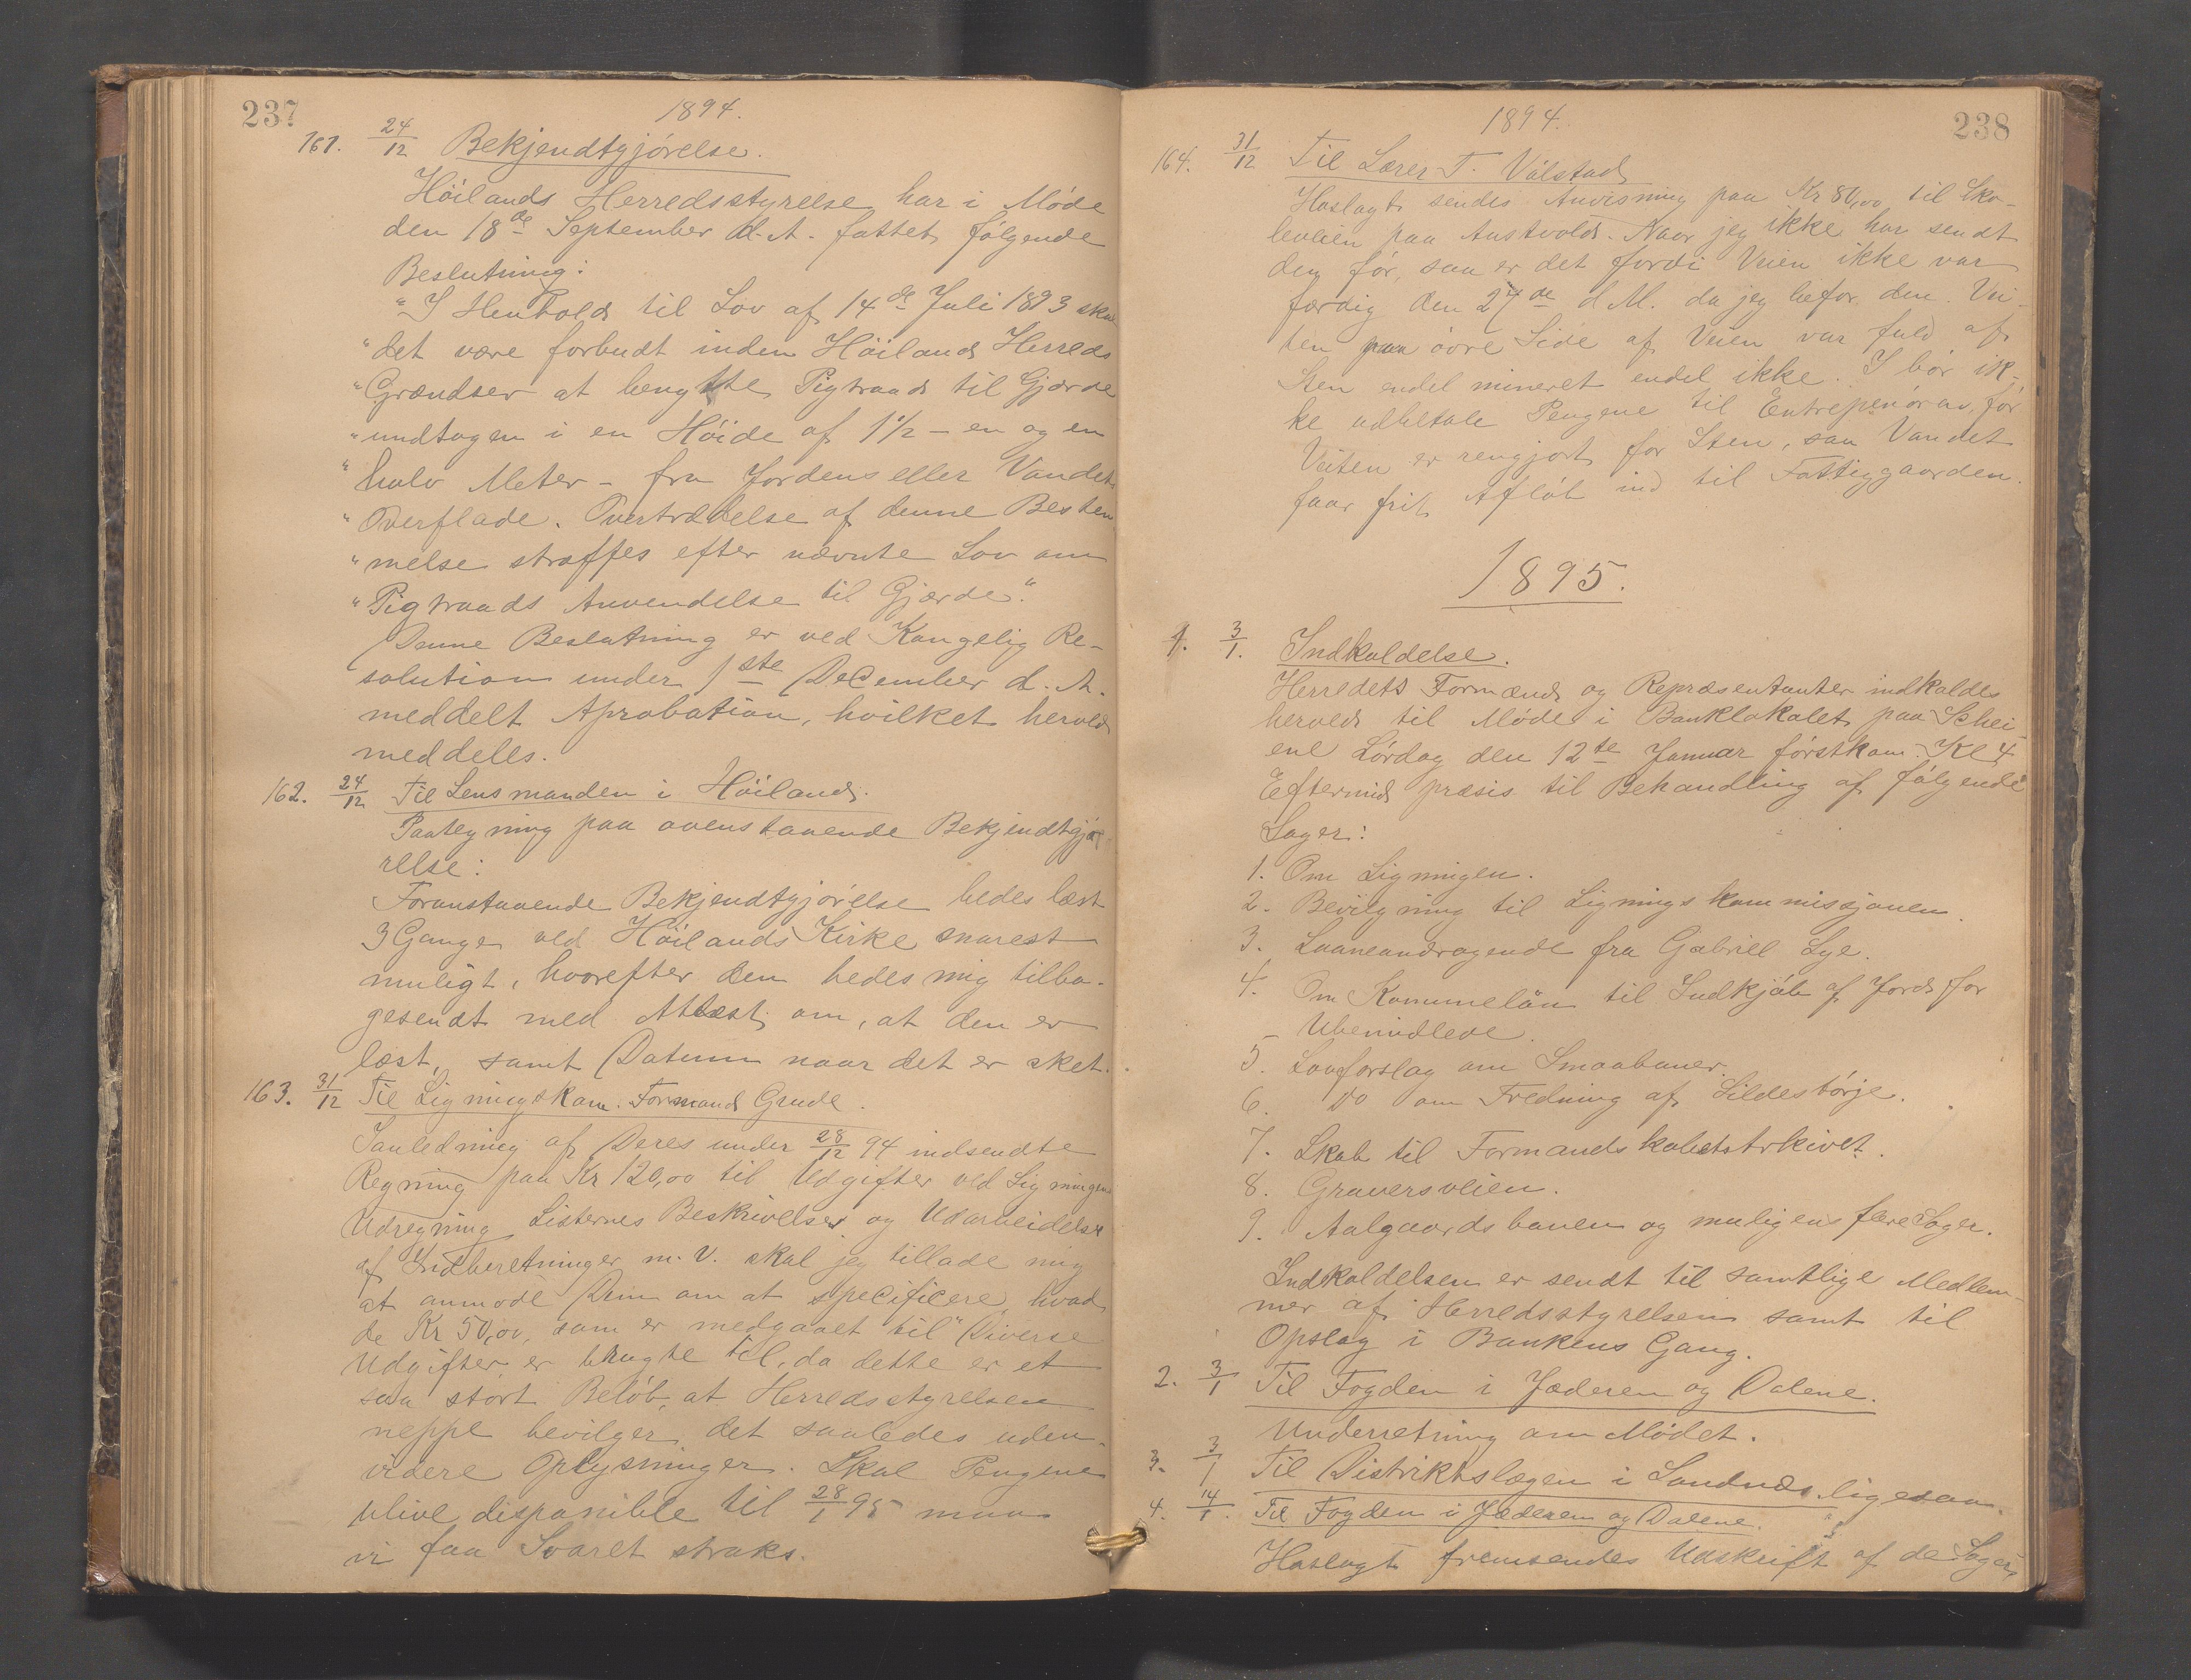 237
1894.
161. 24/12 Bekjendtgjórelse.
Hóilands Herredsstyrelse har i Móde
den 18de September d. A. fattet fólgende
Beslutning:
"I Henhold til Lov af 14de Juli 1893 skal
"det være forbudt inden Hóilands Herreds
"Grændser at benytte Pigtraad til Gjærde
"undtagen i en Hóide af 1 1/2 - en og en
"halv Meter - fra Jordens eller Vandets
"Overflade. Overtrædelse af denne Bestem
"melse straffes efter nævnte Lov om
"Pigtraads Anvendelse til Gjærde."
Denne Beslutning er ved Kongelig Re-
solution under 1ste December d. A.
meddelt Aprobation, hvilket herved
meddeles.
162. 24/12 Til Lensmanden i Hóiland.
Paategning paa ovenstaaende Bekjendtgjó-
relse:
Foranstaaende Bekjendtgjórelse bedes læst
3 Gange ved Hóilands Kirke snarest
muligt, hvorefter den bedes mig tilba-
gesendt med Attest om, at den er
læst, samt Datum naar det er sket.
163. 31/12 Til Ligningskom. Formand Grude.
I anledning af Deres under 28/12 94 indsendte
Regning paa Kr 120,00 til Udgifter ved Ligningens
Udregning Listernes Beskrivelse og Udarbeidelse
af Indberetninger m. V. skal jeg tillade mig
at anmode Dem om at specificere, hvad
de Kr 50,00, som er medgaaet til "Diverse
Udgifter er brugte til, da dette er et
saa stort Belób, at Herredsstyrelsen
neppe bevilger det saaledes uden
videre Oplysninger. Skal Pengene
blive disponible til 28/1 95 maa
vi faa Svaret straks.
238
1894.
164. 31/12 Til Lærer T. Válstad
Hoslagt sendes Anvisning paa Kr 80,00 til Sko-
leveien paa Austvold. Naar jeg ikke har sendt
den fór, saa er det fordi Veien ikke var
færdig den 27de d. M. da jeg befor den. Vei-
ten paa óvre Side af Veien var fuld af
Sten endel mineret endel ikke. I bór ik-
ke udbetale Pengene til Entrepenóren, fór
Veiten er rengjort for Sten, saa Vandet
faar frit Aflób ind til Fattiggaarden.
1895.
1. 3/1. Indkaldelse.
Herredets Formænd og Repræsentanter indkaldes
herved til Móde i Banklokalet paa Schei-
ene Lórdag den 12te Januar fórstkom. Kl 4
Eftermid præsis til Behandling af fólgende
Sager:
1. Om Ligningen.
2. Bevilgning til Ligningskommissjonen.
3. Laaneandragende fra Gabriel Lye.
4. Om Kommunelån til Indkjób af Jord for
- Ubemidlede.
5. Lovforslag om Smaabaner.
6. Do om Fredning af Sildestórje.
7. Skab til Formandskabets Arkivet.
8. Graversveien.
9. Aalgaardsbanen og muligens flere Sager.
Indkaldelsen er sendt til samtlige Medlem-
mer af Herredsstyrelsen samt til
Opslag i Bankens Gang.
2. 3/1 Til Fogden i Jæderen og Dalene.
Underretning om Módet.
3. 3/1 Til Distriktslægen i Sandnæs. ligesaa.
4. 14/1. Til Fogden i Jæderen og Dalene.
Hoslagt fremsendes Udskrift af de Sager,